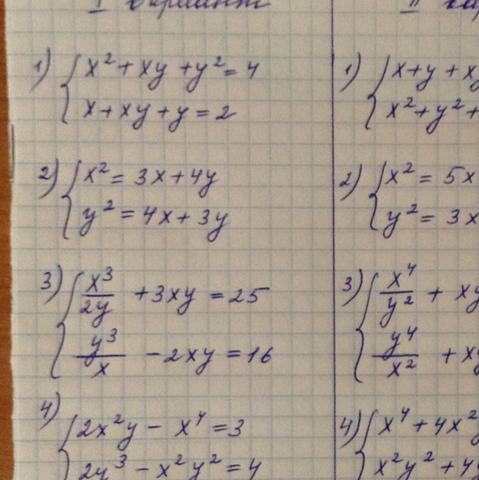 I вариант
1) { x² + xy + y² = 4
x + xy + y = 2
2) { x² = 3x + 4y
y² = 4x + 3y
3) { x³/2y + 3xy = 25
y³/x - 2xy = 16
4) { 2x²y - x⁴ = 3
2y³ - x²y² = 4
II
1) { x + y + xy
x² + y² +
2) { x² = 5x
y² = 3x
3) { x⁴/y² + xy
y⁴/x² + xy
4) { x⁴ + 4x²y
x²y² + 4y